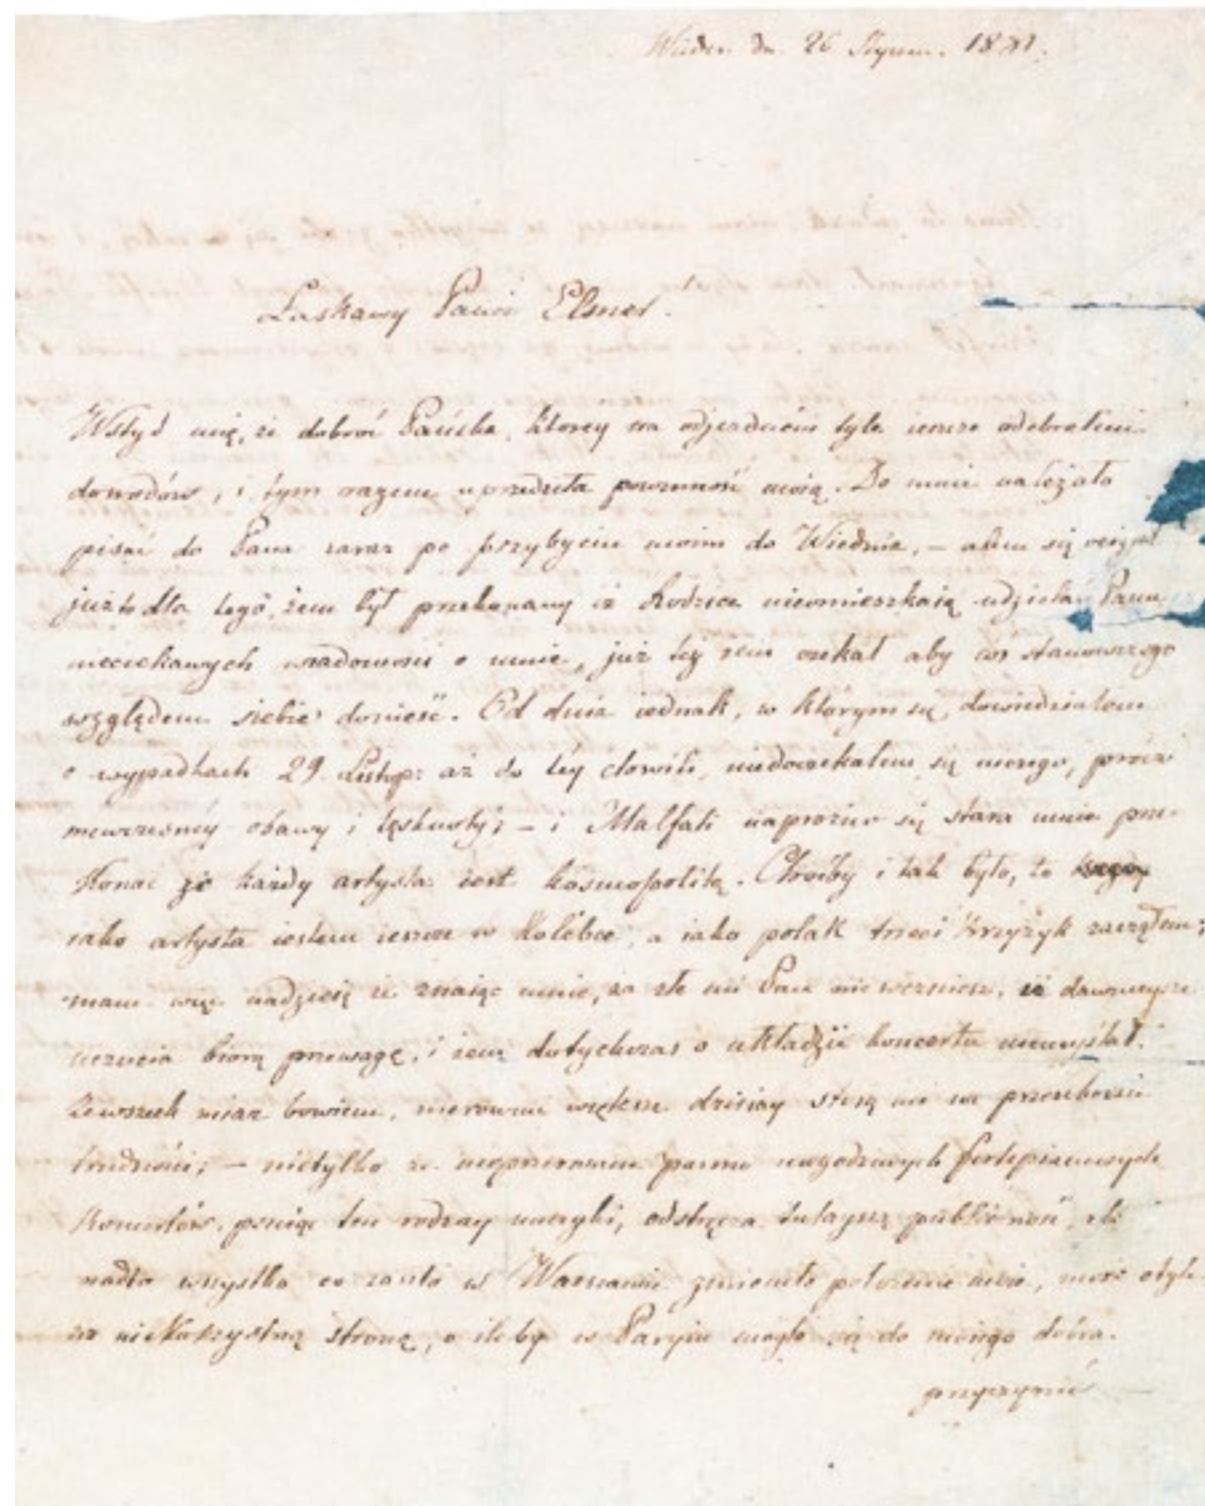 Wiédeń dn. 26 Stycz. 1831.
Łaskawy Panie Elsner.
Wstyd mię, że dobroć Pańska, którey na odjezdnem tyle ieszcze odebrałem
dowodów, i tym razem uprzedziła powinność moią. Do mnie należało
pisać do Pana zaraz po przybyciu moim do Wiednia, – alem się
już to dla tego, żem był przekonany iż Rodzice nieomieszkaią udzielać Panu
nieciekawych wiadomości o mnie, już też żem czekał aby coś stanowczego
względem siebie donieść. Od dnia iednak, w którym się dowiedziałem
o wypadkach 29. Listop: aż do téy chwili, niedoczekałem się niczego, prócz
obawy i tęsknoty; – i Malfati napróżno się stara mnie prze-
konać że każdy artysta iest kosmopolitą. Choćby i tak było, to
iako artysta iestem ieszcze w kolébce, a iako polak trzeci krzyżyk zacząłem;
mam więc nadzieię że znaiąc mnie, za złe mi Pan nie weźmiesz, iż dawnieysze
uczucia biorą przewagę, i żem dotychczas o układzie koncertu niemyślał.
Zewszech miar bowiem, nierównie większe dzisiay stoią mi na przeszkodzie
trudności; – nietylko że nieprzerwane pasmo niegodziwych fortepianowych
Koncertów, psuiąc ten rodzay muzyki, odstręcza tutayszą publiczność, ale
nadto wszystko co zaszło w Warszawie zmieniło położenie moie, może o tyle
na niekorzystną stronę, o ileby w Paryżu mogło się do moiego dobra.
przyczynić